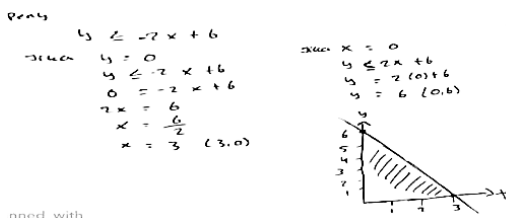 Peny
y ≤ -2x + 6
Jika y = 0
y ≤ -2x + 6
0 = -2x + 6
2x = 6
x = 6/2
x = 3 (3.0)
Jika x = 0
y ≤ 2x + 6
y = 2(0) + 6
y = 6 (0,6)
y
6
5
4
3
2
1
1 2 3 x
nned with